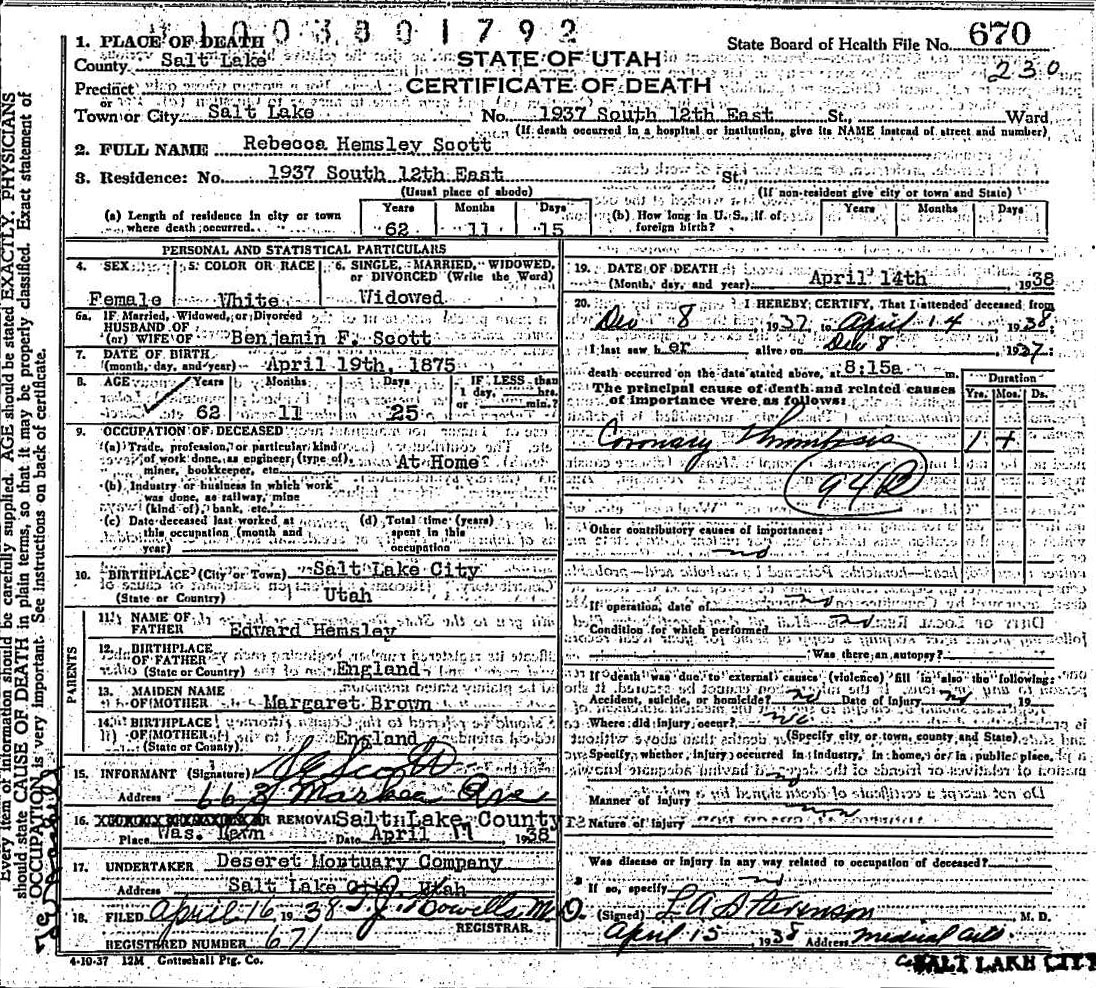 1003801792
1. PLACE OF DEATH
State Board of Health File No. 670
County Salt Lake
STATE OF UTAH
230
Precinct
CERTIFICATE OF DEATH
or
Town or City Salt Lake No. 1937 South 12th East St., Ward
(If death occurred in a hospital or institution, give its NAME instead of street and number)
2. FULL NAME Rebecca Hemsley Scott
3. Residence: No. 1937 South 12th East St.
(Usual place of abode) (If non-resident give city or town and State)
(a) Length of residence in city or town where death occurred. Years 62 Months 11 Days 15
(b) How long in U. S., if of foreign birth? Years Months Days
PERSONAL AND STATISTICAL PARTICULARS
4. SEX Female
5. COLOR OR RACE White
6. SINGLE, MARRIED, WIDOWED, or DIVORCED (Write the Word) Widowed
6a. IF Married, Widowed, or Divorced
HUSBAND OF
(or) WIFE OF Benjamin F. Scott
7. DATE OF BIRTH
(month, day, and year) April 19th, 1875
8. AGE Years 62 Months 11 Days 25 IF LESS than 1 day, hrs. or min.?
9. OCCUPATION OF DECEASED
(a) Trade, profession, or particular kind
of work done, as engineer, (type of) At Home
miner, bookkeeper, etc.
(b) Industry or business in which work
was done, as railway, mine
(kind of), bank, etc.
(c) Date deceased last worked at
this occupation (month and
year)
(d) Total time (years)
spent in this
occupation
10. BIRTHPLACE (City or Town) Salt Lake City
(State or Country) Utah
PARENTS
11. NAME OF
FATHER Edward Hemsley
12. BIRTHPLACE
OF FATHER
(State or Country) England
13. MAIDEN NAME
OF MOTHER Margaret Brown
14. BIRTHPLACE
OF MOTHER
(State or Country) England
15. INFORMANT (Signature) Scott
Address 663 Ave
16. OR REMOVAL Salt Lake County
Place Was. Lawn Date April 17 1938
17. UNDERTAKER Deseret Mortuary Company
Address Salt Lake City, Utah
18. FILED April 16, 1938 T. J. Howells M.D.
REGISTRAR.
REGISTERED NUMBER 671
4-10-37 12M Gottschall Ptg. Co.
19. DATE OF DEATH
(Month, day, and year) April 14th 1938
20. I HEREBY CERTIFY, That I attended deceased from
Dec 8 1937, to April 14 1938;
I last saw her alive on Dec 8 1937
death occurred on the date stated above, at 8:15a m.
The principal cause of death and related causes
of importance were as follows:
Duration
Yrs. Mos. Ds.
Coronary Thrombosis 1 +
94B
Other contributory causes of importance:
no
If operation, date of no
Condition for which performed no
Was there an autopsy?
If death was due to external causes (violence) fill in also the following:
Accident, suicide, or homicide? no Date of Injury no 19
Where did injury occur? no
(Specify city, or town, county and State)
Specify whether injury occurred in industry, in home, or in public place,
no
Manner of Injury
Nature of Injury no
Was disease or injury in any way related to occupation of deceased?
If so, specify no
(Signed) L A Stevenson M. D.
April 15 1938 Address Medical Arts
SALT LAKE CITY
Every item of information should be carefully supplied. AGE should be stated EXACTLY. PHYSICIANS
should state CAUSE OF DEATH in plain terms, so that it may be properly classified. Exact statement of
OCCUPATION is very important. See instructions on back of certificate.